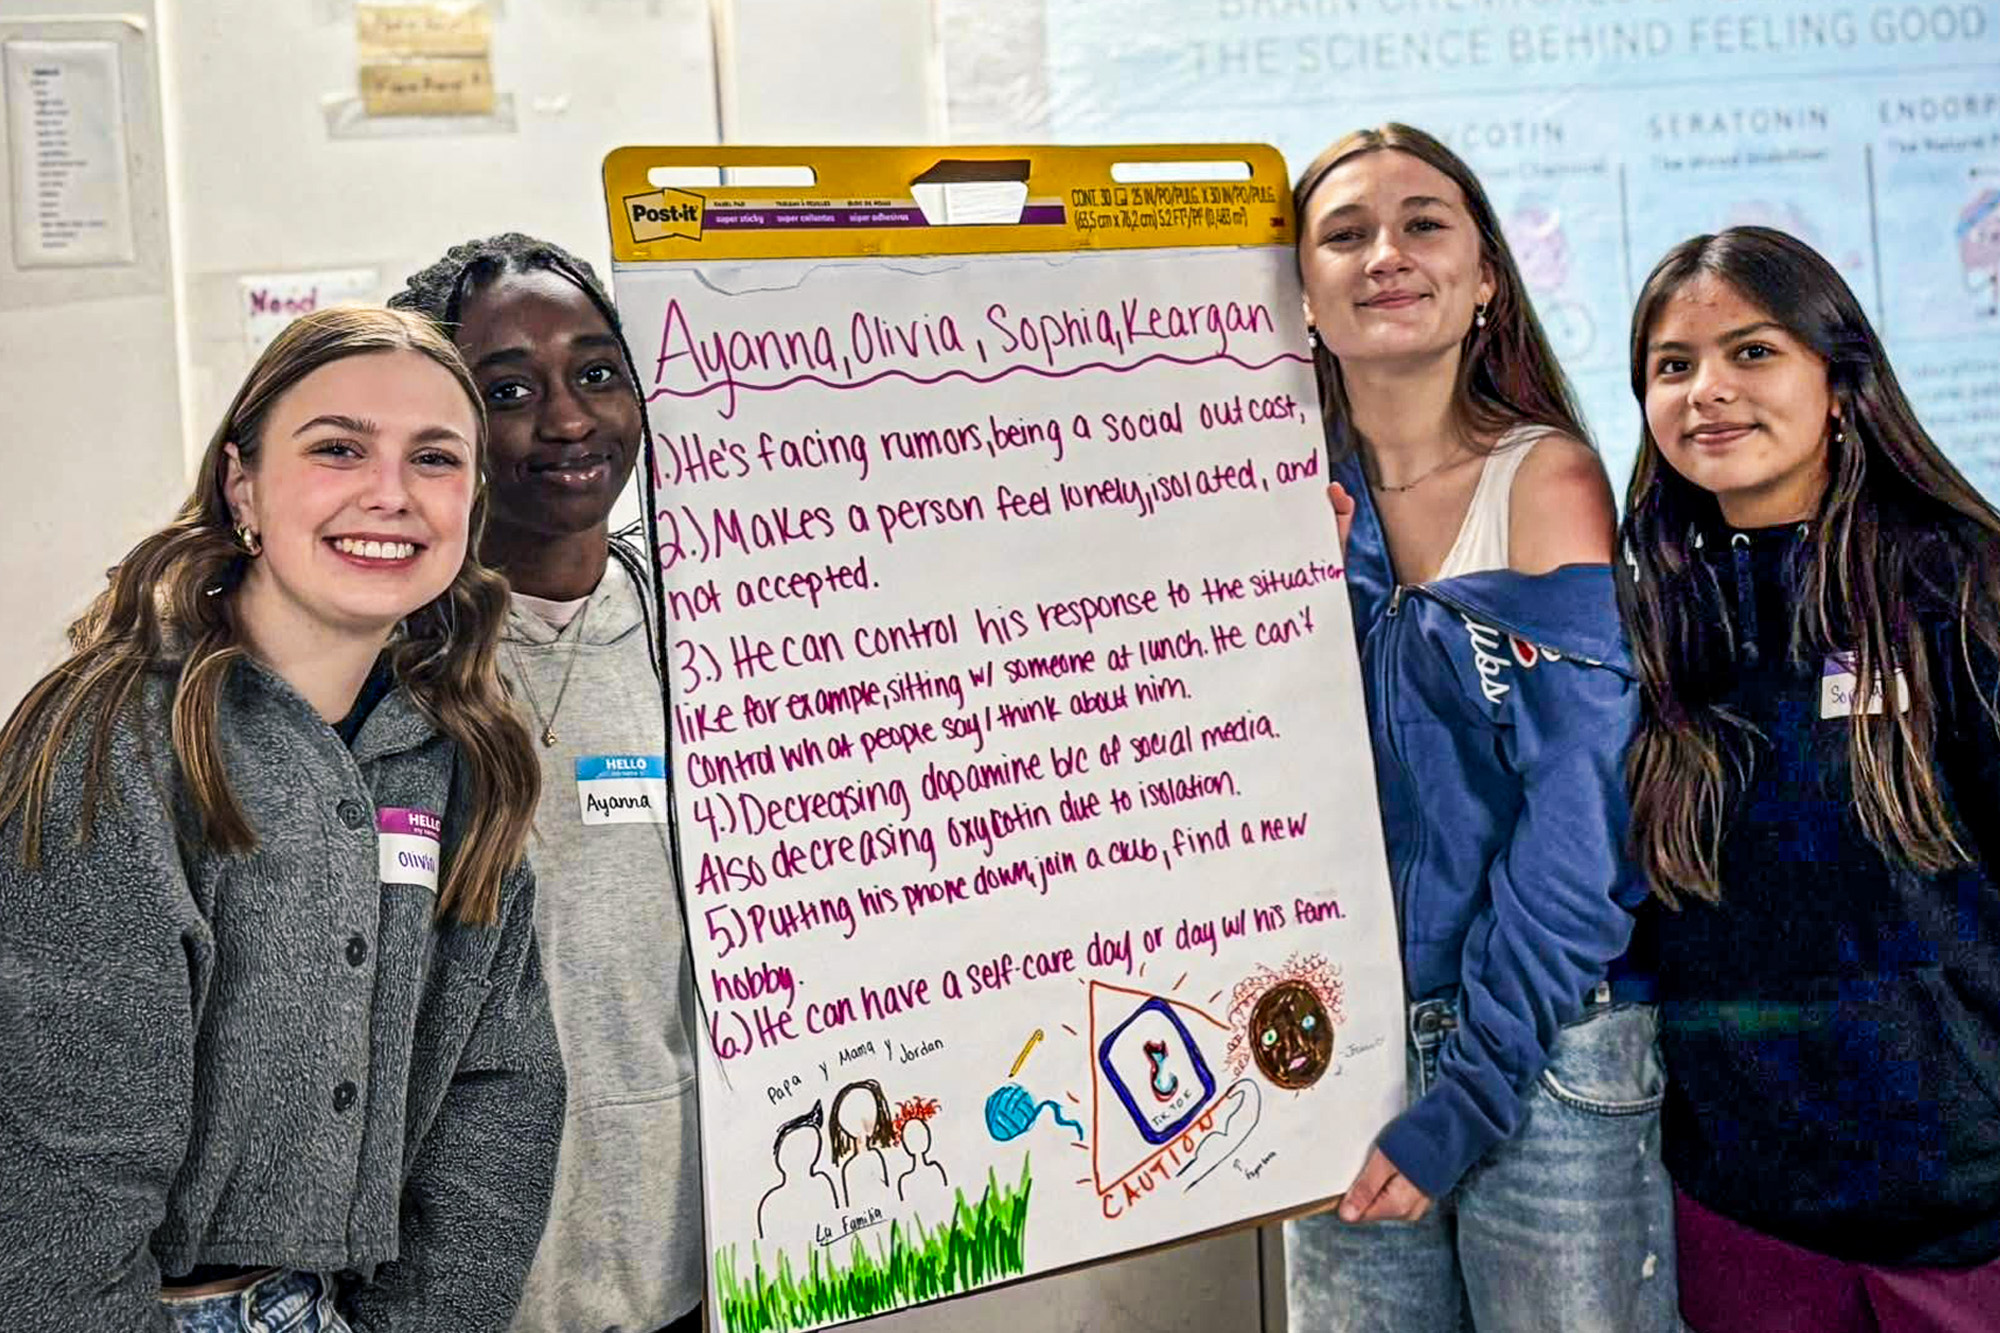 THE SCIENCE BEHIND FEELING GOOD
SERATONIN
Need
Post-it
super sticky super collantes súper adhesivas
CONT. 30 25 IN/PO/PULG. X 30 IN/PO/PULG.
(63,5 cm x 76,2 cm) 5.2 FT²/PI² (0,483 m²)
Ayanna, Olivia, Sophia, Keargan
1.) He's facing rumors, being a social outcast,
2.) Makes a person feel lonely, isolated, and
not accepted.
3.) He can control his response to the situation
like for example, sitting w/ someone at lunch. He can't
control what people say/think about him.
4.) Decreasing dopamine b/c of social media.
Also decreasing oxycotin due to isolation.
5.) Putting his phone down, join a club, find a new
hobby.
6.) He can have a self-care day or day w/ his fam.
Papa y Mama y Jordan
La Familia
TIKTOK
CAUTION
HELLO
Olivia
HELLO
Ayanna